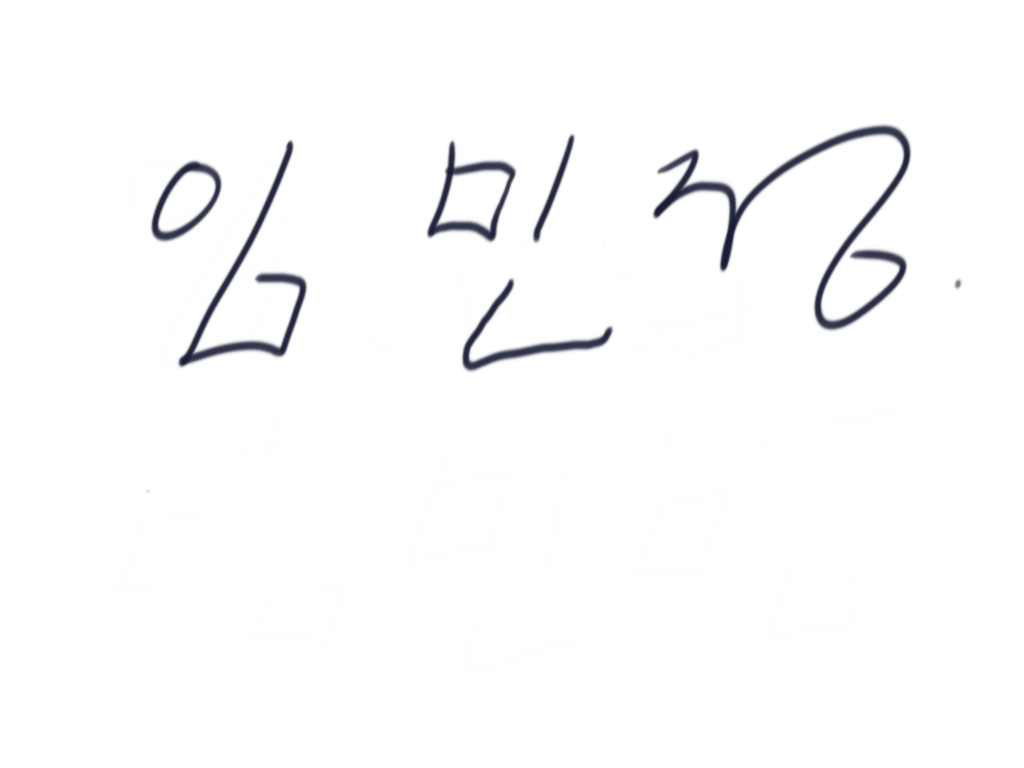 임민정.